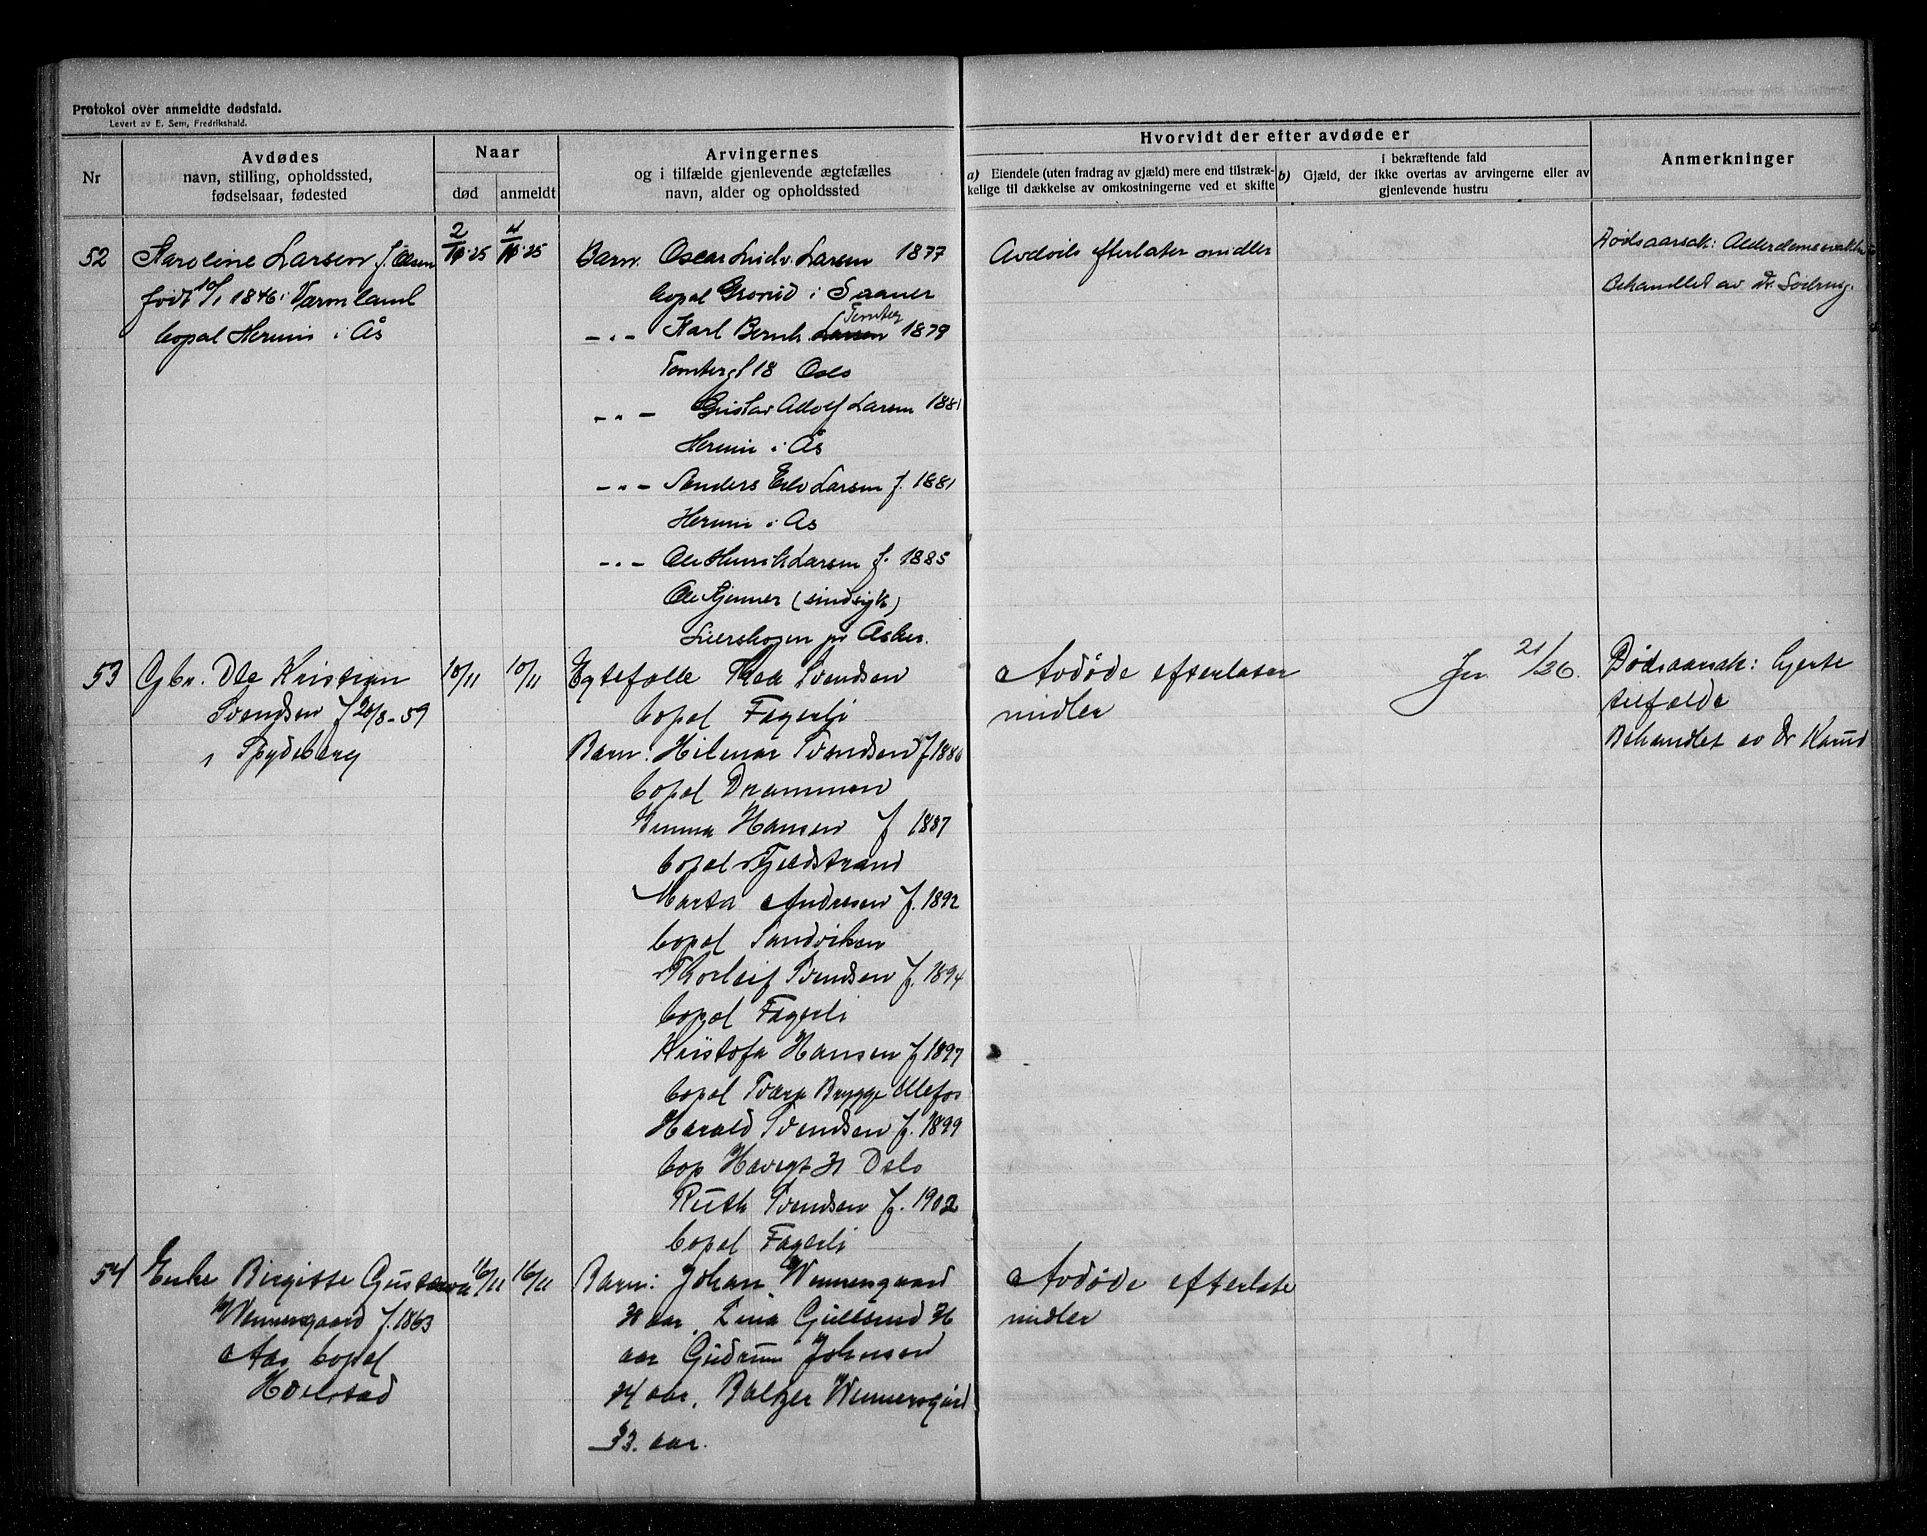 Protokol over anmeldte dødsfald.
Levert av E. Sem, Fredrikshald.
Nr
Avdødes
navn, stilling, opholdssted,
fødselsaar, fødested
Naar
død
anmeldt
Arvingernes
og i tilfælde gjenlevende ægtefælles
navn, alder og opholdssted
Hvorvidt der efter avdøde er
a) Eiendele (uten fradrag av gjæld) mere end tilstræk-
kelige til dækkelse av omkostningerne ved et skifte
i bekræftende fald
b) Gjæld, der ikke overtas av arvingerne eller av
gjenlevende hustru
Anmerkninger
52
Karoline Larsen f. Olsen
født 10/1 1846 i Värmland
bopal i Ås
2/10-25
4/10-25
Barn. Oscar Ludv. Larsen 1877
bopal i
-"- Karl Bernh. Larsen 1879
18 Oslo
-"- Gustav Adolf Larsen 1881
i Ås
-"- Larsen f. 1881
i Ås
-"- Ole Henrik Larsen f. 1885
(sindsyk)
Lierskogen pr Asker.
efterlater midler
Dødsaarsak:
Behandlet av Dr.
53
Gbr. Ole Kristian
Svendsen f 20/8-59
i Spydeberg
10/11
10/11
Egtefolle Thea Svendsen
bopal Fagerli
Barn: Hilmar Svendsen f 1886
bopal Drammen
Emma Hansen f 1887
bopal Fjeldstrand
Marta Andresen f. 1892
bopal Sandviken
Thorleif Svendsen f. 1894
bopal Fagerli
Kristofa Hansen f 1897
bopal Brygge Ulefos
Harald Svendsen f. 1899
bop Oslo
Ruth Svendsen f. 1902
bopal Fagerli
Avdøde efterlater
midler
21/26.
Dødsaarsak: hjerte
tilfælde
Behandlet av Dr
54
Enke Birgitte
Wennersgaard f. 1863
Aas bopal
Holstad
16/11
16/11
Barn: Johan Wennersgaard
aar, Lina
aar Gudrun Johnsen
aar. Baltzer Wennersgård
33. aar.
Avdøde efterlate
midler